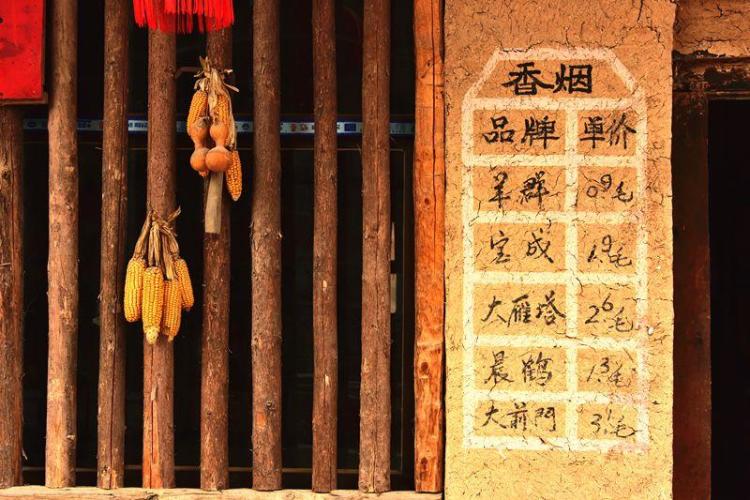 香烟
品牌 单价
羊群 0.9毛
宝成 1.9毛
大雁塔 2.6毛
晨鹤 1.3毛
大前門 3.1毛